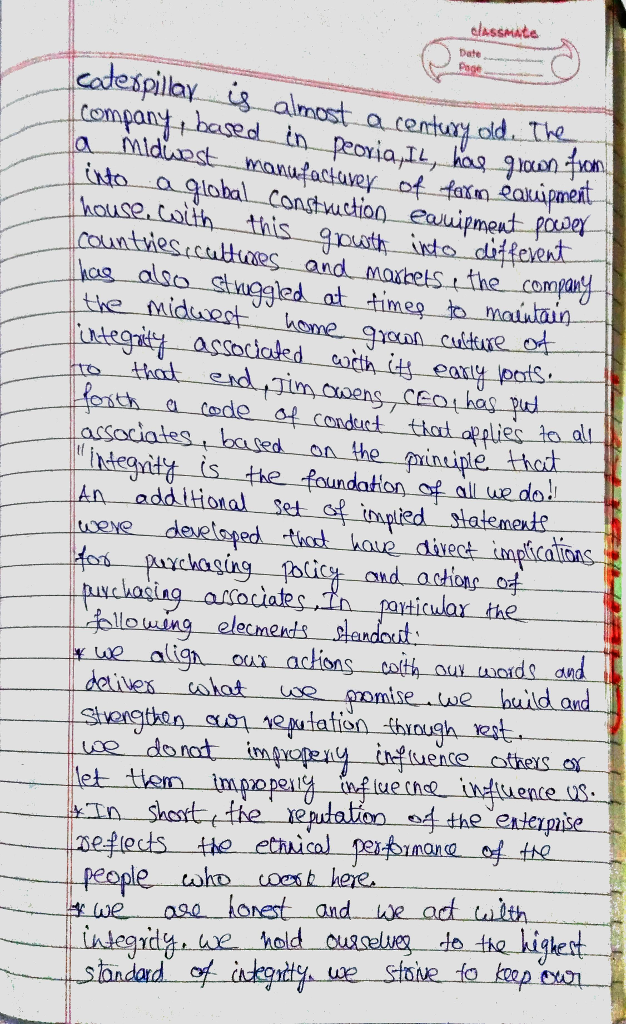 classmate
Date
Page
caterpillar is almost a century old. The
company, based in peoria, IL, has grown from
a midwest manufacturer of farm eauuipment
into a global construction eauuipment power
house. with this growth into different
countries, cultures and markets, the company
has also struggled at times to maintain
the midwest home grown culture of
integrity associated with its early roots.
to that end, Jim owens, CEO, has put
forth a code of conduct that applies to all
associates, based on the principle that
"integrity is the foundation of all we do!!
An additional set of implied statements
were developed that have direct implications
for purchasing policy and actions of
purchasing associates. In particular the
following elecments standout:
* we align our actions with our words and
deliver what we promise. we build and
strengthen our reputation through rest.
we donot improperly influence others or
let them improperly influecnce influence us.
* In short, the reputation of the enterprise
reflects the ethnical performance of the
people who work here.
* we are honest and we act with
integrity. we hold ourselves to the highest
standard of integrity. we strive to keep our